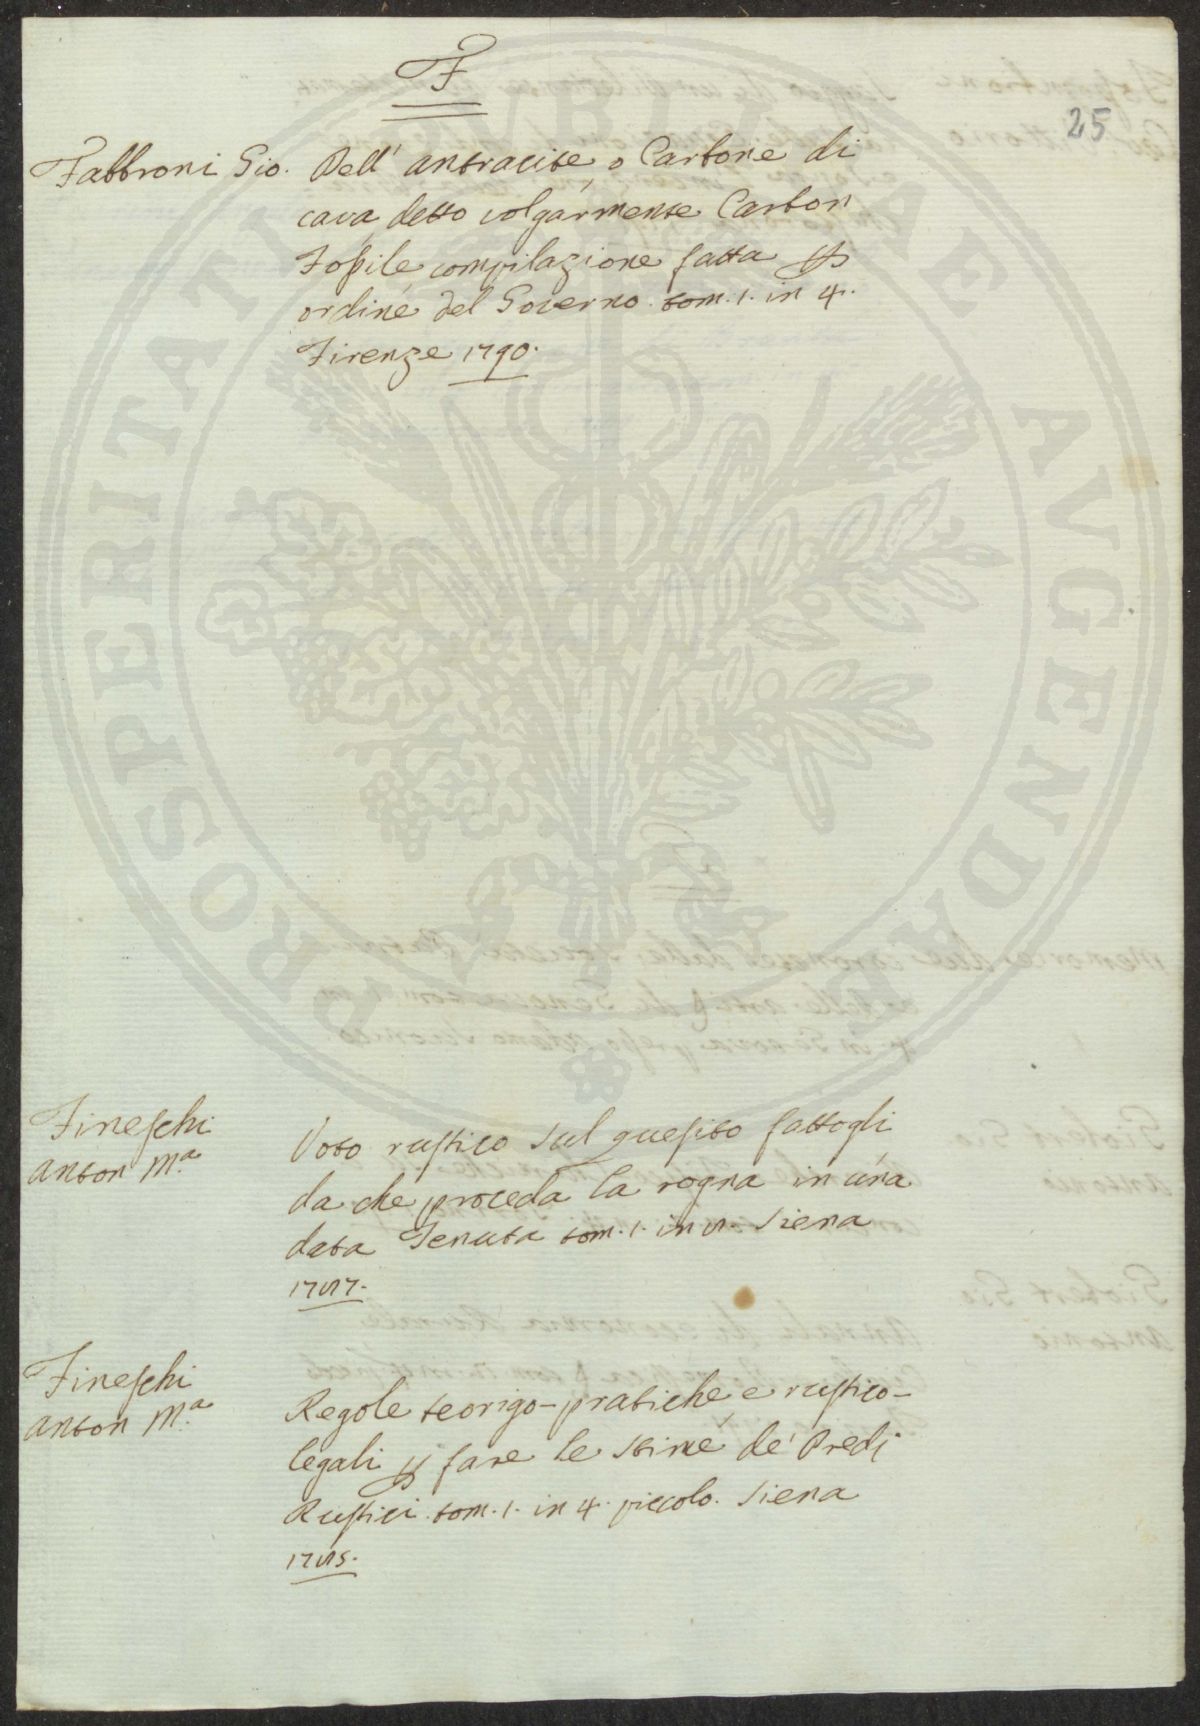 F
25
Fabbroni Gio. Dell' antracite, o Carbone di
cava, detto volgarmente Carbon
Fossile compilazione fatta per
ordine del Governo. tom. 1. in 4.
Firenze 1790.
Fineschi
Anton M.a
Voto rustico sul quesito fattogli
da che proceda la rogna in una
data Tenuta tom. 1. in 8. Siena
1787.
Fineschi
Anton M.a
Regole teorigo-pratiche e rustico-
legali per fare le stime de' Predj
Rustici. tom. 1. in 4. piccolo. Siena
1785.
PROSPERITATI PUBLICAE AVGENDAE